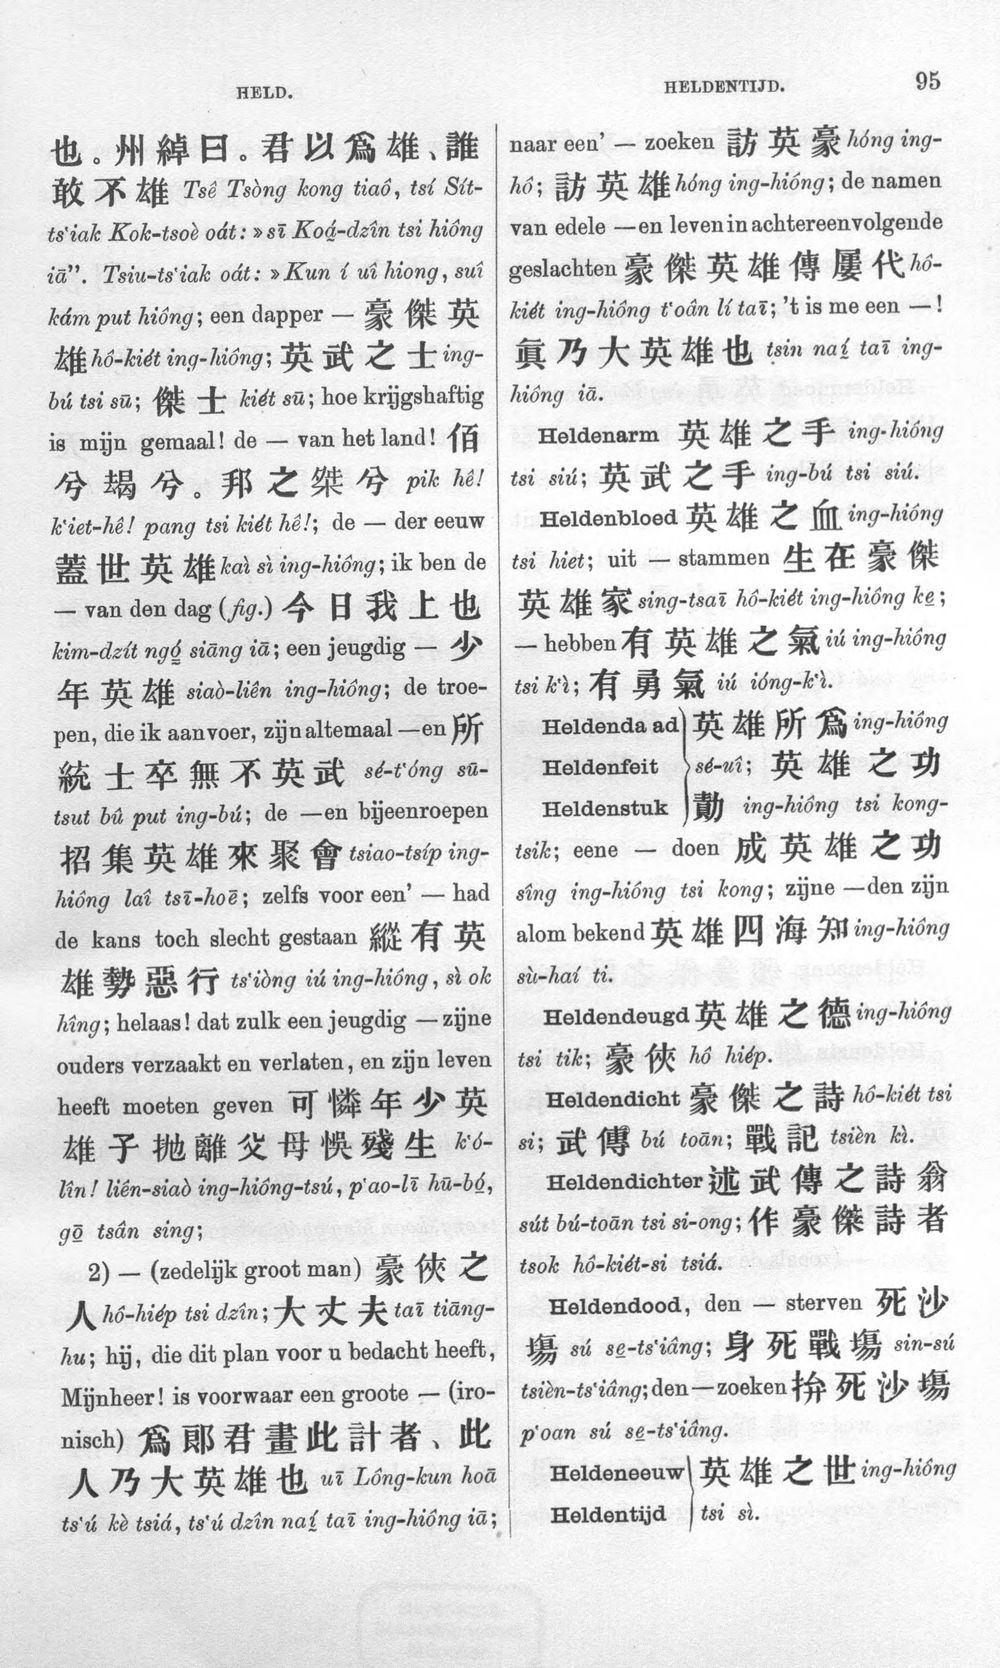 HELD.
HELDENTIJD.
95
也。州綽曰。君以爲雄、誰
敢不雄 Tsê Tsòng kong tiaô, tsí Sít-
ts‘iak Kok-tsoè oát: »sī Koą́-dzîn tsi hiông
iā”. Tsiu-ts‘iak oát: »Kun í uî hiong, suî
kám put hiông; een dapper — 豪傑英
雄 hô-kiét ing-hiông; 英武之士 ing-
bú tsi sū; 傑士 kiét sū; hoe krijgshaftig
is mijn gemaal! de — van het land! 佰
兮朅兮。邦之桀兮 pik hê!
k‘iet-hê! pang tsi kiét hê!; de — der eeuw
蓋世英雄 kaì sì ing-hiông; ik ben de
— van den dag (fig.) 今日我上也
kim-dzít ngó̤ siāng iā; een jeugdig — 少
年英雄 siaò-liên ing-hiông; de troe-
pen, die ik aanvoer, zijn altemaal —en 所
統士卒無不英武 sé-t‘óng sū-
tsut bû put ing-bú; de —en bijeenroepen
招集英雄來聚會 tsiao-tsíp ing-
hiông laî tsī-hoē; zelfs voor een’ — had
de kans toch slecht gestaan 縱有英
雄勢惡行 ts‘iòng iú ing-hiông, sì ok
hîng; helaas! dat zulk een jeugdig — zijne
ouders verzaakt en verlaten, en zijn leven
heeft moeten geven 可憐年少英
雄子拋離父母悞殘生 k‘ó-
lîn! liên-siaò ing-hiông-tsú, p‘ao-lī hū-bó̤,
gō̤ tsân sing;
2) — (zedelijk groot man) 豪俠之
人 hô-hiép tsi dzîn; 大丈夫 taī tiāng-
hu; hij, die dit plan voor u bedacht heeft,
Mijnheer! is voorwaar een groote — (iro-
nisch) 爲郞君畫此計者、此
人乃大英雄也 uī Lông-kun hoā
ts‘ú kè tsiá, ts‘ú dzîn naí̤ taī ing-hiông iā;
naar een’ — zoeken 訪英豪 hóng ing-
hô; 訪英雄 hóng ing-hiông; de namen
van edele —en leven in achtereenvolgende
geslachten 豪傑英雄傳屢代 hô-
kiét ing-hiông t‘oân lí taī; ’t is me een —!
眞乃大英雄也 tsin naí̤ taī ing-
hiông iā.
Heldenarm 英雄之手 ing-hiông
tsi siú; 英武之手 ing-bú tsi siú.
Heldenbloed 英雄之血 ing-hiông
tsi hiet; uit — stammen 生在豪傑
英雄家 sing-tsaī hô-kiét ing-hiông ke̤;
— hebben 有英雄之氣 iú ing-hiông
tsi k‘ì; 有勇氣 iú ióng-k‘ì.
Heldendaad 英雄所爲 ing-hiông
Heldenfeit sé-uî; 英雄之功
Heldenstuk 勣 ing-hiông tsi kong-
tsik; eene — doen 成英雄之功
sîng ing-hiông tsi kong; zijne —den zijn
alom bekend 英雄四海知 ing-hiông
sù-haí ti.
Heldendeugd 英雄之德 ing-hiông
tsi tik; 豪俠 hô hiép.
Heldendicht 豪傑之詩 hô-kiét tsi
si; 武傳 bú toān; 戰記 tsièn kì.
Heldendichter 述武傳之詩翁
sút bú-toān tsi si-ong; 作豪傑詩者
tsok hô-kiét-si tsiá.
Heldendood, den — sterven 死沙
塲 sú se̤-ts‘iâng; 身死戰塲 sin-sú
tsièn-ts‘iâng; den — zoeken 拚死沙塲
p‘oan sú se̤-ts‘iâng.
Heldeneeuw 英雄之世 ing-hiông
Heldentijd tsi sì.